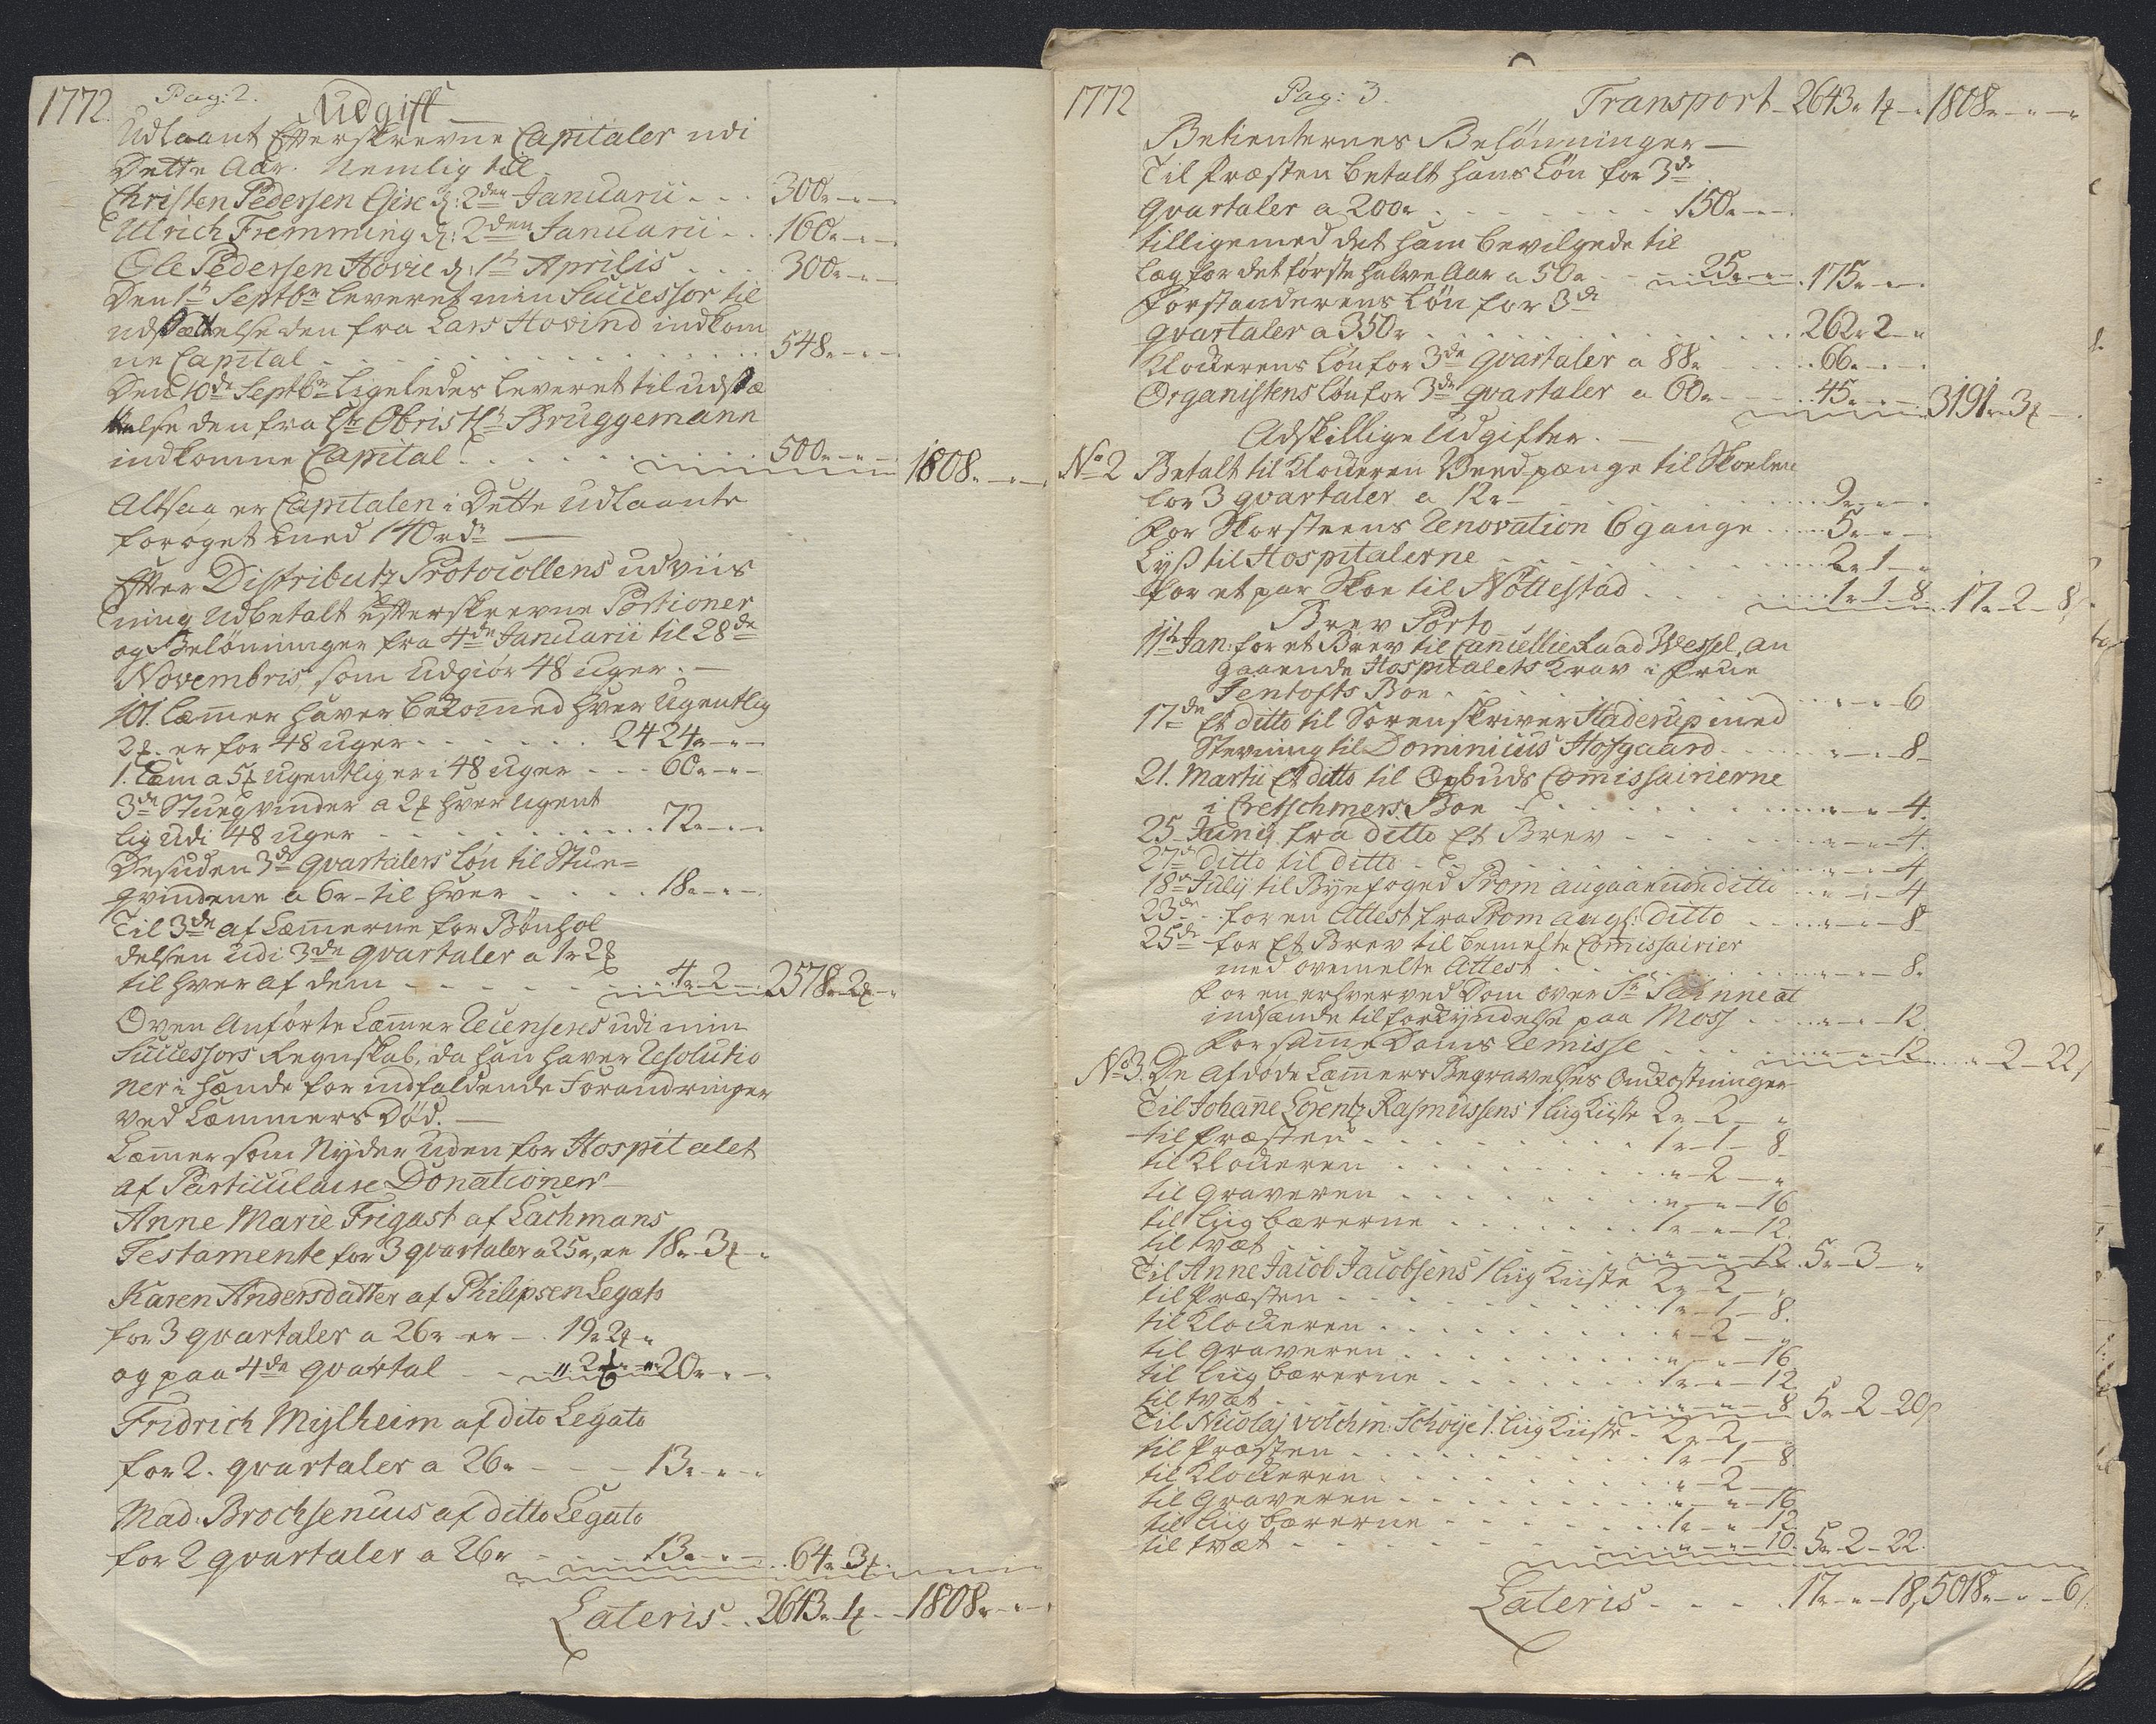 1772. Pag: 2. Udgift
Udlaant Efterskrevne Capitaler udi
Dette Aar. Nemlig till
Christen Pedersen Gire d: 2den Januarii . . . 300r-"-"
Ulrich Fremming d: 2den Januarii . . 160r-"-"
Ole Pedersen Hovie d: 1te Aprilis . . . 300r-"-"
Den 1te Septbr leveret min Successor til
udsættelse den fra Lars Hovind indkom
ne Capital . . . 548r-"-"
Den 10de Septbr Ligeledes leveret til udsæ
ttelse den fra Hr Obrist Bruggemann
indkomne Capital . . . 500r-"-" 1808r-"-"
Altsaa er Capitalen i Dette Udlaante
forøget med 140rdr
Efter Distributz Protocollens udviis
ning Udbetalt efterskrevne Portioner
og Belønninger fra 4de Januarii til 28de
Novembris, som udgiør 48 uger. —
101. Lemmer haver bekommed hver Ugentlig
2ƺ. er for 48 uger . . . 2424r-"-"
1. Lem a 5ƺ ugentlig er i 48 uger . . . 60r-"-"
3de Stuegvinder a 2ƺ hver ugent
lig udi 48 uger . . . 72r-"-"
Desuden 3de qvartalers løn til Stue=
qvindene a 6r- til hver . . . 18r-"-"
Til 3de af Lemmerne for Bønhol
delsen udi 3de qvartaler a 1r 2ƺ
til hver af dem . . . 4r-2-" 2578r-2ƺ-"
Oven Anførte Lemmer Recenseres udi min
Successors Regnskab, da han haver Resolutio
ner i hænde for indfaldende Forandringer
ved Lemmers Død. —
Lemmer som Nyder Uden for Hospitalet
af Particulaire Donationer —
Anne Marie Frigast af Lachmans
Testamente for 3 qvartaler a 25r, er 18r-3ƺ-"
Karen Andersdatter af Philipsen Legato
for 3 qvartaler a 26r er — 19r 2ƺ "
og paa 4de qvartal . . . " 2ƺ " 20r-"-"
Fridrich Mylheim af dito Legato
for 2. qvartaler a 26r . . . 13r-"-"
Mad. Brochsenius af ditto Legato
for 2 qvartaler a 26r . . . 13r-"-" 64r-3ƺ-
Lateris . . 2643r-1ƺ-"- 1808r-"-"
1772 Pag: 3. Transport - 2643r-1ƺ-" 1808r-"-"
Betienternes Belønninger —
Til Præsten betalt hans Løn for 3de
qvartaler a 200r . . . 150r-"-"
tilligemed det ham bevilgede til
læg for det første halve Aar a 50r . . . 25r-"-" 175r-"-"
Forstanderens Løn for 3de
qvartaler a 350r . . . 262r 2-"
Klockerens Løn for 3de qvartaler a 88r . . . 66r-"-"
Organistens Løn for 3de qvartaler a 60r . . . 45r-"-" 3191r-3ƺ-
Adskillige Udgifter. —
No 2 Betalt til Klockeren Veed penge til Skoelen
for 3 qvartaler a 12r . . . 9r-"-"
For Skorsteens Renovation 6 gange . . . 5r-"-"
Lyß til Hospitalerne . . . 2r-1-"
For et par Skoe til Nöttestad . . . 1r-1-8 17r-2-8
Brev Porto
11te Jan: for et Brev til Cancellie Raad Wessel, an
gaaende Hospitalets Krav i Frue
Jentofts Boe . . . "-"-6
17de Et ditto til Sorenskriver Haderup med
Stevning til Dominicus Hofgaard . . . "-"-8
21. Martii Et ditto til Opbuds Comissairierne
i Cretschmers Boe . . . "-"-4.
25 Junij fra ditto Et Brev . . . "-"-4.
27de ditto til ditto . . . "-"-4
18de Julij til Byefoged Prom angaaende ditto . . . "-"-4
23de for en Attest fra Prom angl: ditto . . . "-"-8
25de for Et Brev til bemelte Comissairier
med ovemelte Attest . . . "-"-8.
For en erhverved Dom over Sr at
indsænde til forkyndelse paa Moss . . . "-"-12.
For samme Doms Remisse . . . "-"-12 "-2-22
No 3. De Afdøde Lemmers Begravelses Omkostninger
Til Johanne Lorentz Rasmussens 1 Liig Kiiste 2r-2-"
til Præsten . . . 1r-1-8
til Klockeren . . . "-2-"
til Graveren . . . "-"-16
til Liigbærerne . . . 1r-"-12.
til tvæt . . . "-"-12 5r-3-"
Til Anne Jacob Jacobsens 1 Liig Kiiste 2r-2-"
til Præsten . . . 1r-1-8.
til Klockeren . . . "-2-"
til Graveren . . . "-"-16
til Liigbærerne . . . 1r-"-12
til tvæt . . . "-"-8 5r-2-20
Til Nicolaj Volchm: Schøye 1. Liig Kiiste . 2r-2-"
til Præsten . . . 1r-1-8.
til Klockeren . . . "-2-
til Graveren . . . "-"-16
til Liigbærerne . . . 1r-"-12.
til tvæt . . . "-"-10. 5r-2-22.
Lateris . . . 17r-"-18, 5018r-"-6